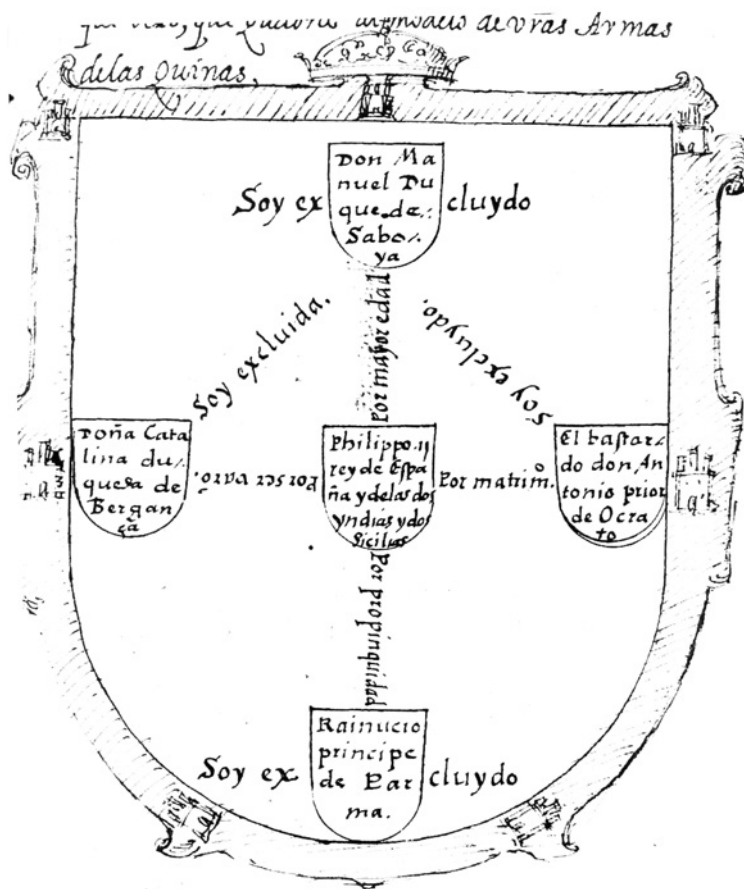 de vr̃as Armas
de las Quinas,
Don Ma
nuel Du
que de
Sabo
ya
Soy ex cluydo
Por mayor edad
Soy excluida.
Soy excluydo.
Doña Cata
lina du
quesa de
Bergan
ça
Por ser varõ.
Philippo. ij
rey de Espa
ña y de las dos
yndias y dos
Sicilias
Por matrim.º
El bastar
do don An
tonio prior
de Ocra
to
Por propinquidad
Rainucio
principe
de Par
ma.
Soy ex cluydo